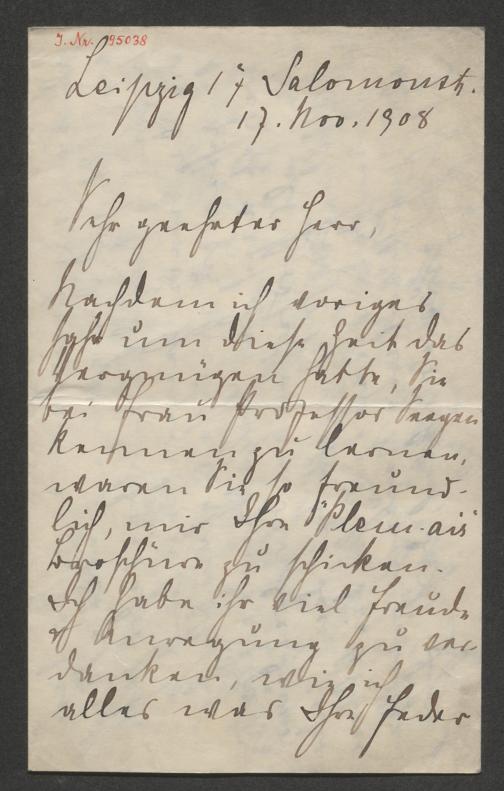 J. Nr. 95038
Leipzig 17 Salomonstr.
17. Nov. 1908
Sehr geehrter Herr,
Nachdem ich voriges
Jahr um diese Zeit das
Vergnügen hatte, Sie
bei Frau Professor Seegen
kennen zu lernen,
waren Sie so freund-
lich, mir Ihre
Broschüre zu schicken.
Ich habe ihr viel Freude
& Anregung zu ver-
danken, wie ich
alles was Ihre Feder